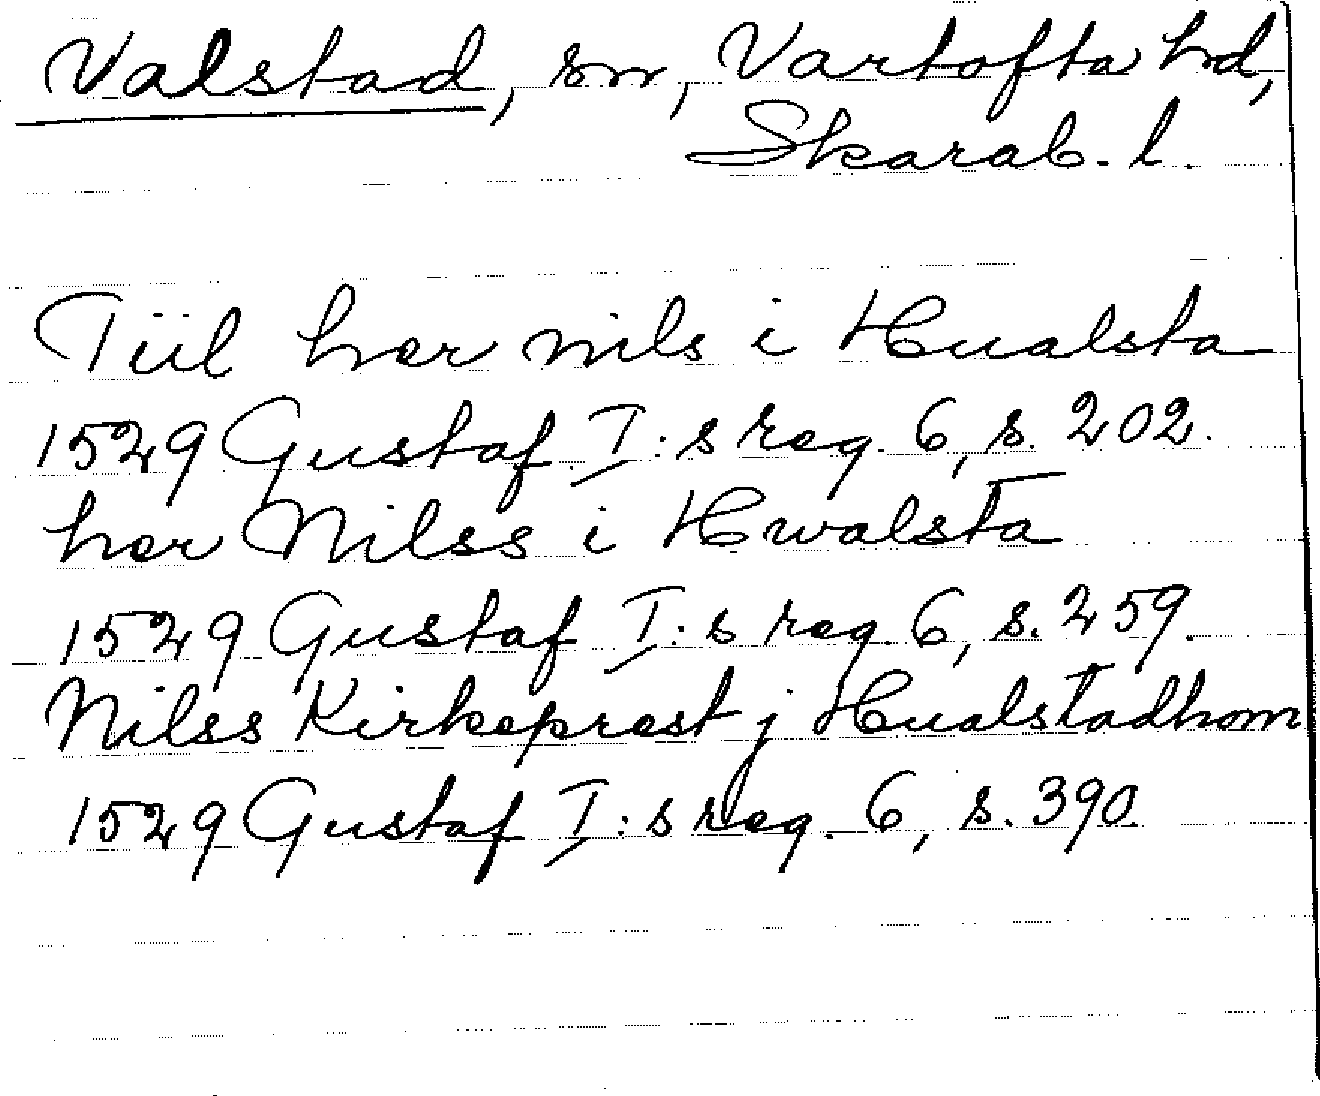 Valstad, sn, Vartofta hd,
Skarab. l.
Tiil her nils i Hualsta
1529 Gustaf I:s reg. 6, s. 202.
her Nilss i Hwalsta
1529 Gustaf I:s reg 6, s. 259.
Nilss Kirkeprest j Hualstadhom
1529 Gustaf I:s reg. 6, s. 390